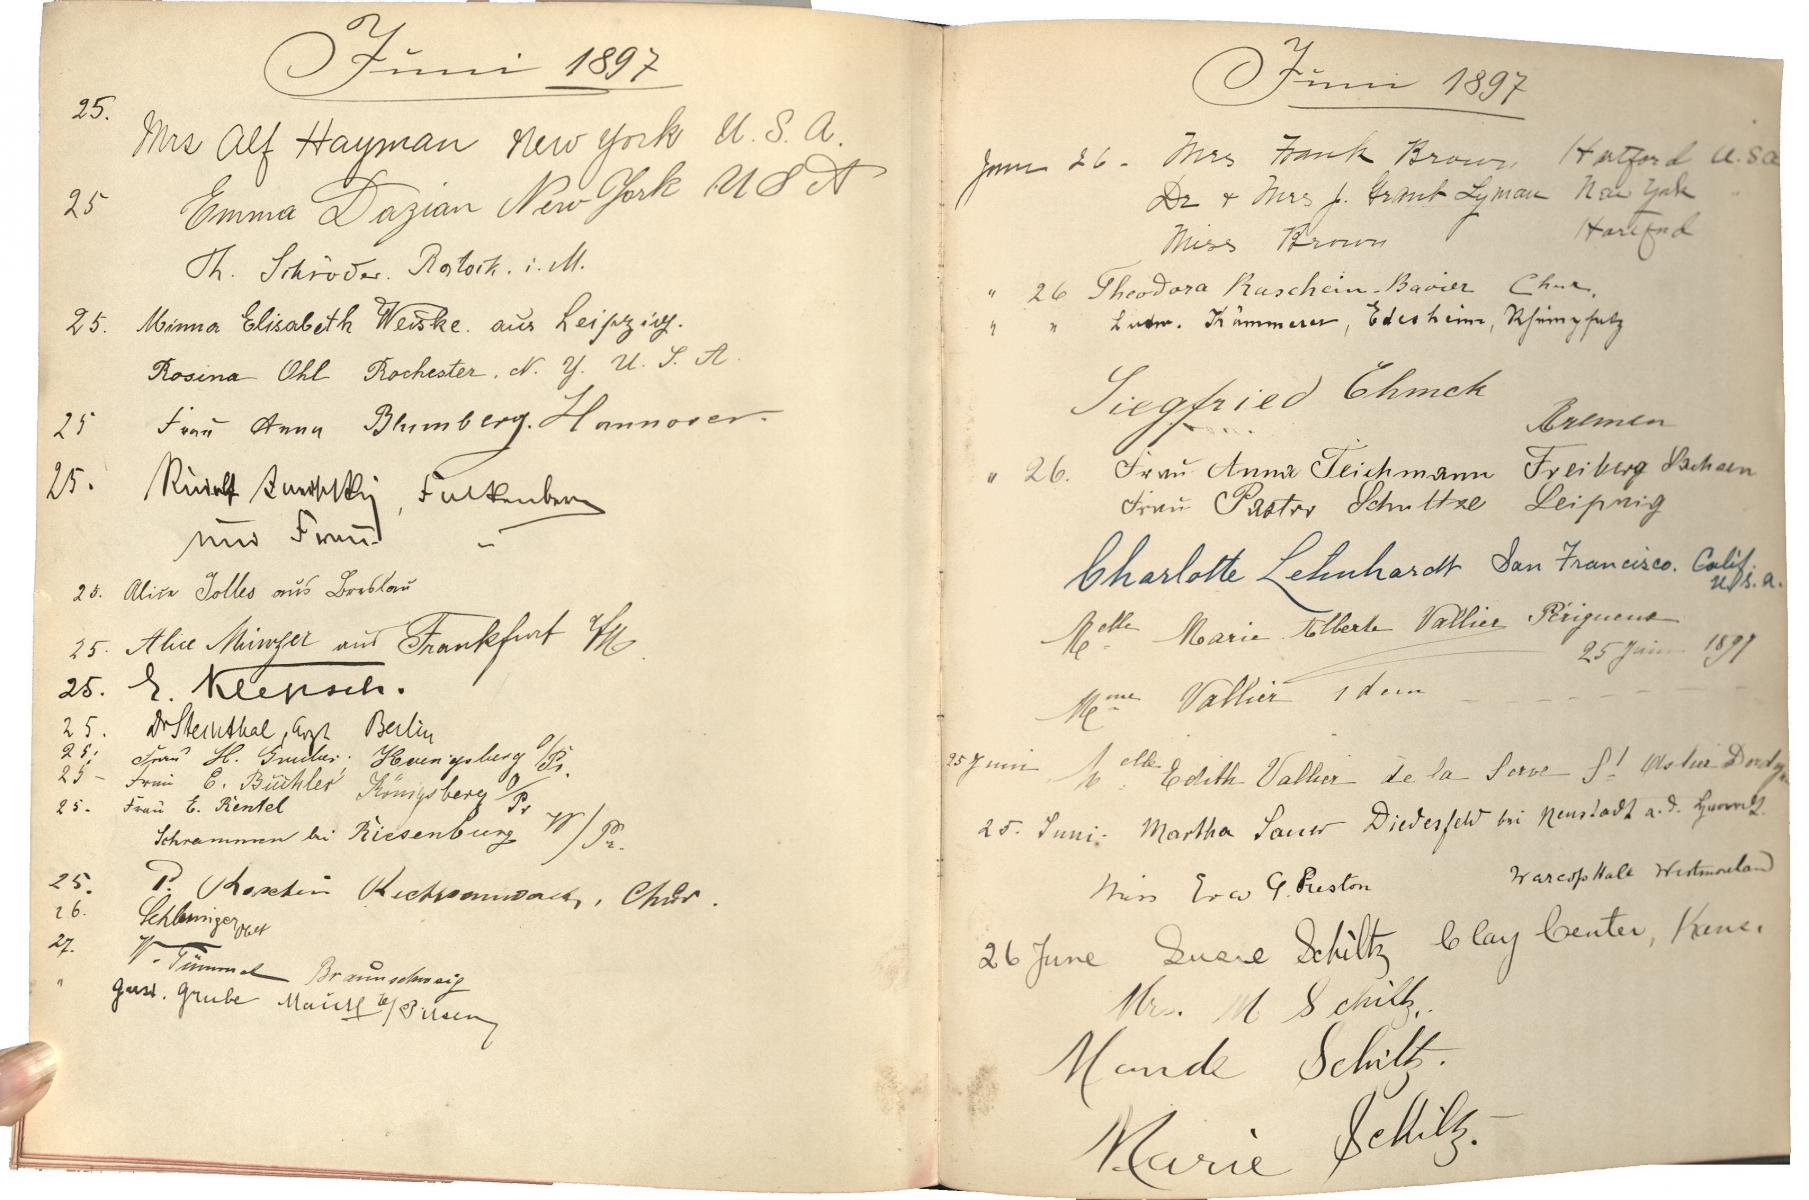 Juni 1897
25. Mrs Alf Hayman New York U. S. A.
25 Emma Dazian New York U S A
Th. Schröder. Rostock. i. M.
25. Minna Elisabeth Weiske. aus Leipzig.
Rosina Ohl Rochester. N. Y. U. S. A
25 Frau Anna Blumberg. Hannover.
25. Falkenberg
und Frau
25. Alice Jolles aus Breslau
25. Alice aus Frankfurt
25. E. Klepsch.
25. Dr Steinthal, Arzt Berlin
25. Frau H. Koenigsberg O/Pr.
25 - Frau E. Büchler Königsberg O/Pr
25. Frau E. Rentel
Schrammen bei Riesenburg W/Pr.
25. P. Chur.
26. Schleusinger
27. W. Tümmel Braunschweig
" Gust. Grube b/Pilsen
Juni 1897
June 26 - Mrs Frank Brown Hartford U.S.A
Dr + Mrs J. Grant Lyman New York
Miss Brown Hartford
" 26 Theodora Raschein-Bavier Chur.
" " Ludw. Kämmerer, Edesheim, Rheinpfalz
Siegfried Ehmck
Bremen
" 26. Frau Anna Teichmann Freiberg Sachsen
Frau Pastor Schultze Leipzig
Charlotte Lehnhardt San Francisco. Calif.
U.S.A.
Melle Marie Alberte Vallier Périgueux
25 Juin 1897
Mme Vallier idem
25 Juin Melle Edith Vallier de la Serve St Astier
25. Juni. Martha Sauer Diedesfeld bei Neustadt a.d. Haardt.
Miss G. Preston Warcop Hall Westmoreland
26 June Schiltz Clay Center, Kans.
Mrs. M Schiltz.
Maude Schiltz.
Marie Schiltz.